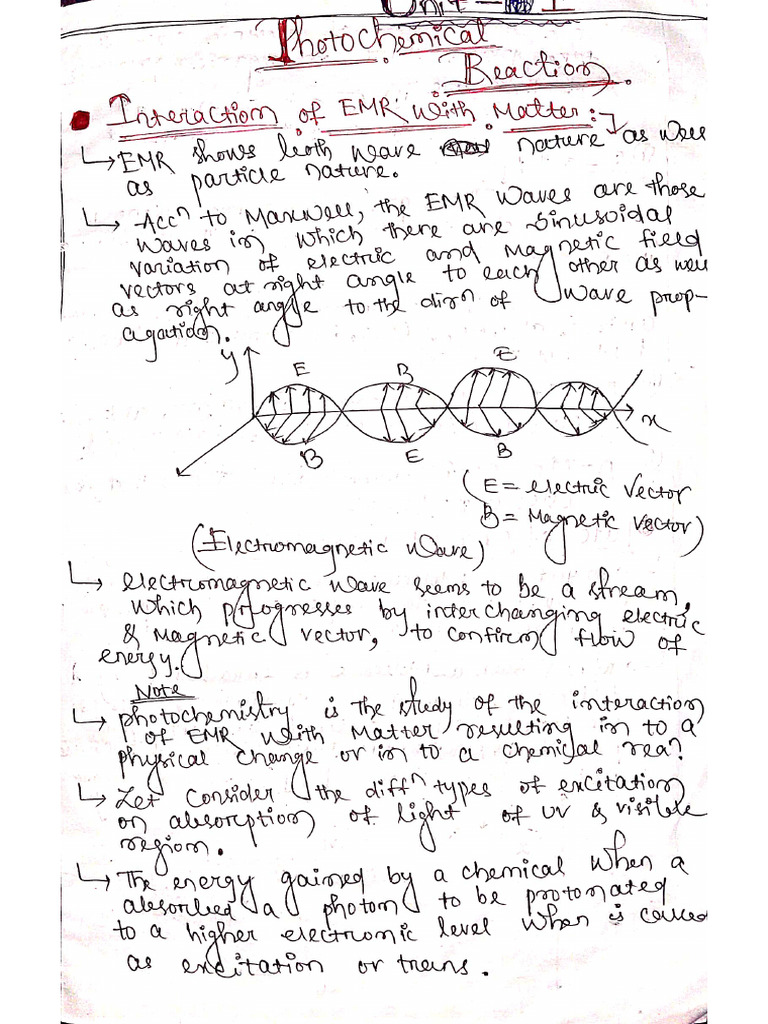 Unit - I
Photochemical
Reaction.
Interaction of EMR with Matter:-
EMR shows both wave nature as well
as particle nature.
Accn to Maxwell, the EMR waves are those
waves in which there are sinusoidal
variation of electric and magnetic field
vectors at right angle to each other as well
as right angle to the dirn of wave prop-
agation.
y
E B E
x
B E B
(E = electric vector
B = Magnetic vector)
(Electromagnetic wave)
electromagnetic wave seems to be a stream,
which progresses by interchanging electric
& magnetic vector, to confirm flow of
energy.
Note
photochemistry is the study of the interaction
of EMR with Matter resulting in to a
physical change or in to a chemical rean
Let consider the diffn types of excitation
on absorption of light of UV & visible
region.
The energy gained by a chemical when a
absorbed a photon to be protonated
to a higher electronic level when is called
as excitation or trans.